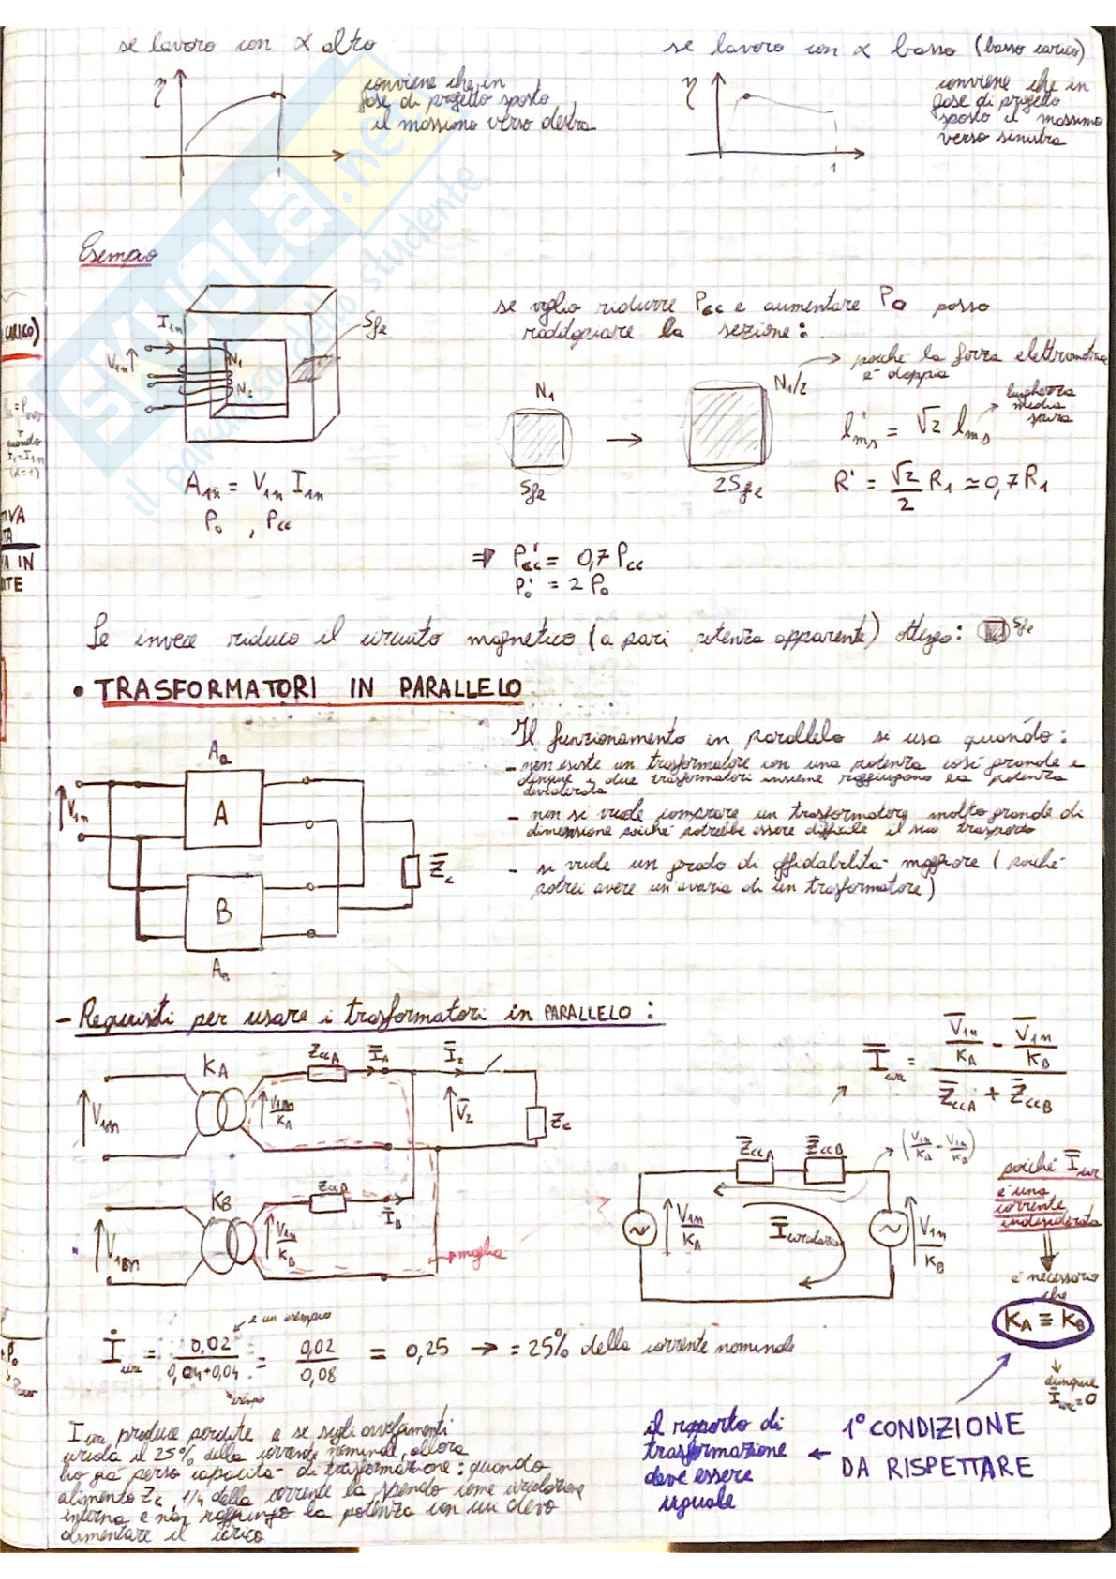 se lavoro con α alto
η
conviene che in
fase di progetto sposto
il massimo verso destra
se lavoro con α basso (basso carico)
η
1
conviene che in
fase di progetto
sposto il massimo
verso sinistra
SKUOLA.net
il paradiso dello studente
Esempio
I1n
V1n
N1
N2
Sfe
A1n = V1n I1n
P0 , Pcc
se voglio ridurre Pcc e aumentare P0 posso
raddoppiare la sezione:
poiché la forza elettromotrice
è doppia
N1
Sfe
N1/2
2Sfe
l'ms = √2 lms
lunghezza
media
spira
R' = √2/2 R1 ≃ 0,7 R1
⇒ P'cc = 0,7 Pcc
P'0 = 2 P0
Se invece riduco il circuito magnetico (a pari potenza apparente) ottengo: Sfe
• TRASFORMATORI IN PARALLELO
Aa
V1n
A
B
AB
Z̄c
Il funzionamento in parallelo si usa quando:
- non esiste un trasformatore con una potenza così grande e
dunque i due trasformatori insieme raggiungono la potenza
desiderata
- non si vuole comprare un trasformatore molto grande di
dimensione poiché potrebbe essere difficile il suo trasporto
- si vuole un grado di affidabilità maggiore (poiché
potrei avere un'avaria di un trasformatore)
- Requisiti per usare i trasformatori in PARALLELO:
KA
ZccA
ĪA
Ī2
V1n
V1n/KA
V̄2
Zc
KB
ZccB
ĪB
V1Bn
V1n/KB
maglia
Īcirc = (V̄1n/KA - V̄1n/KB) / (Z̄ccA + Z̄ccB)
Z̄ccA
Z̄ccB
(V1n/KA - V1n/KB)
V1n/KA
Īcircolazione
V1n/KB
poiché Īcirc
è una
corrente
indesiderata
è necessario
che
KA ≡ KB
dunque
Īcirc=0
è un esempio
İcirc = 0,02/(0,04+0,04) = 0,02/0,08 = 0,25 → = 25% della corrente nominale
esempio
Icirc produce perdite e se sugli avvolgimenti
circola il 25% della corrente nominale, allora
ho già perso capacità di trasformazione: quando
alimento Zc, 1/4 della corrente la spendo come circolazione
interna e non raggiungo la potenza con cui devo
alimentare il carico
il rapporto di
trasformazione
deve essere
uguale
←
1° CONDIZIONE
DA RISPETTARE